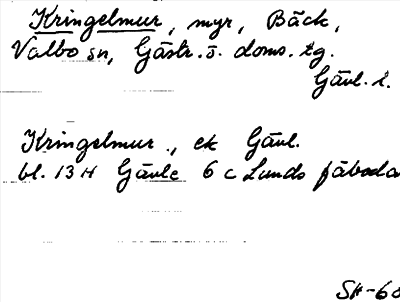 Kringelmur, myr, Bäck,
Valbo sn, Gästr. ö. doms. tg.
Gävl. t.
Kringelmur., ek Gävl.
bl. 13 H Gävle 6 c Lunds fäboda
SH-68